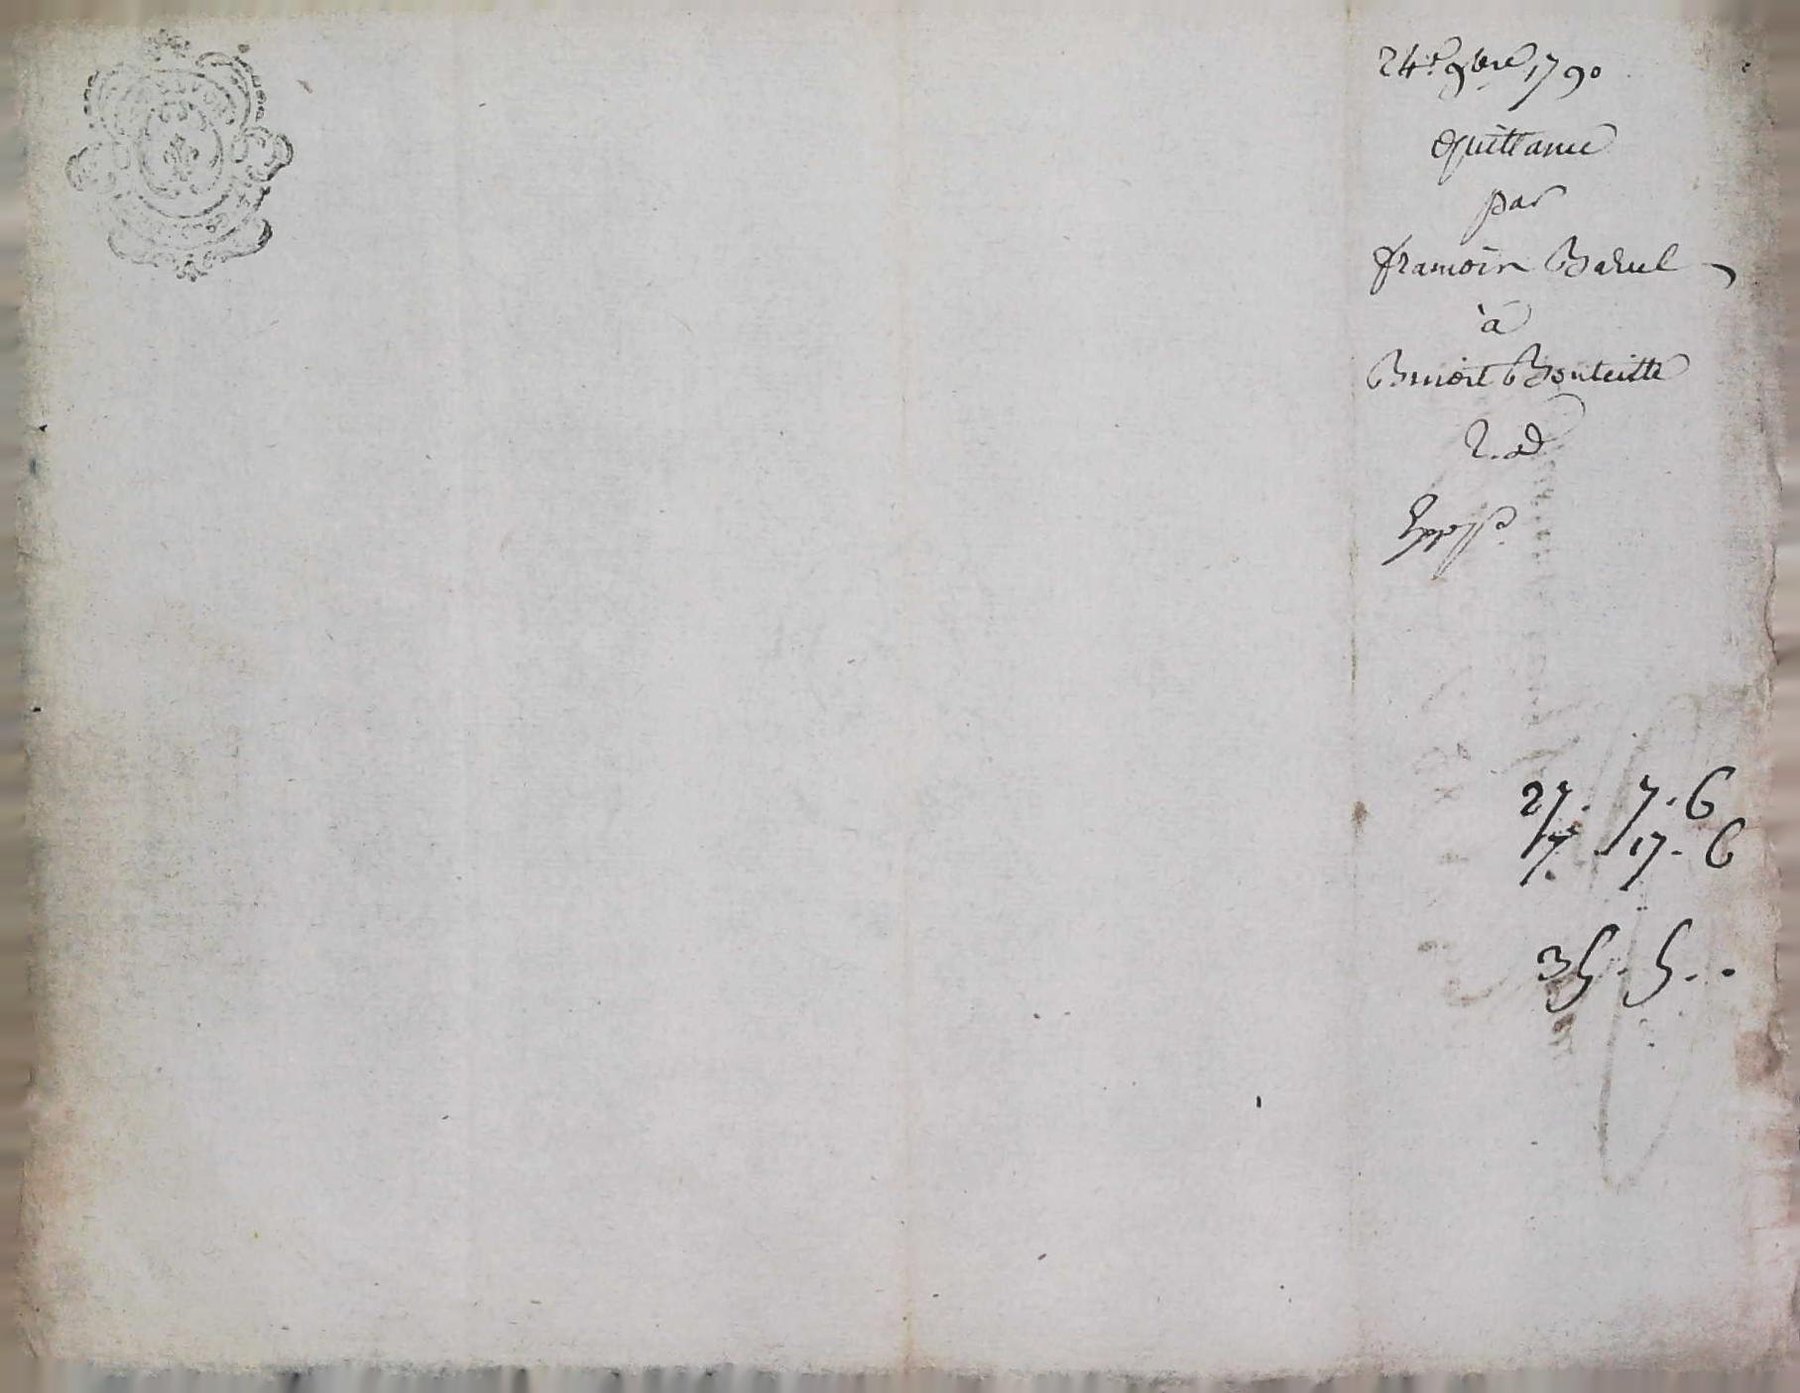 24e 9bre 1790
Quittance
par
francois Barul
à
Benoit Bouteille
2. d
Exppe
27. 7. 6
7. 17. 6
35. 5. .